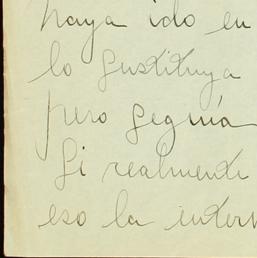 haya ido en
lo sustituya
pero seguía
Si realmente
eso la intern